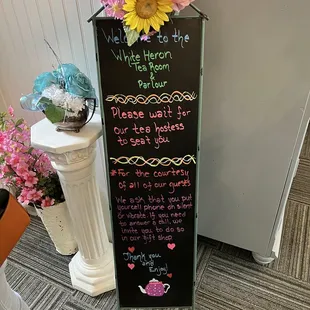 Welcome to the
White Heron
Tea Room
&
Parlour
Please wait for
our tea hostess
to seat you
*For the courtesy
of all of our guests
We ask that you put
your cell phone on silent
or vibrate. If you need
to answer a call, we
invite you to do so
in our gift shop
Thank you
and
Enjoy!